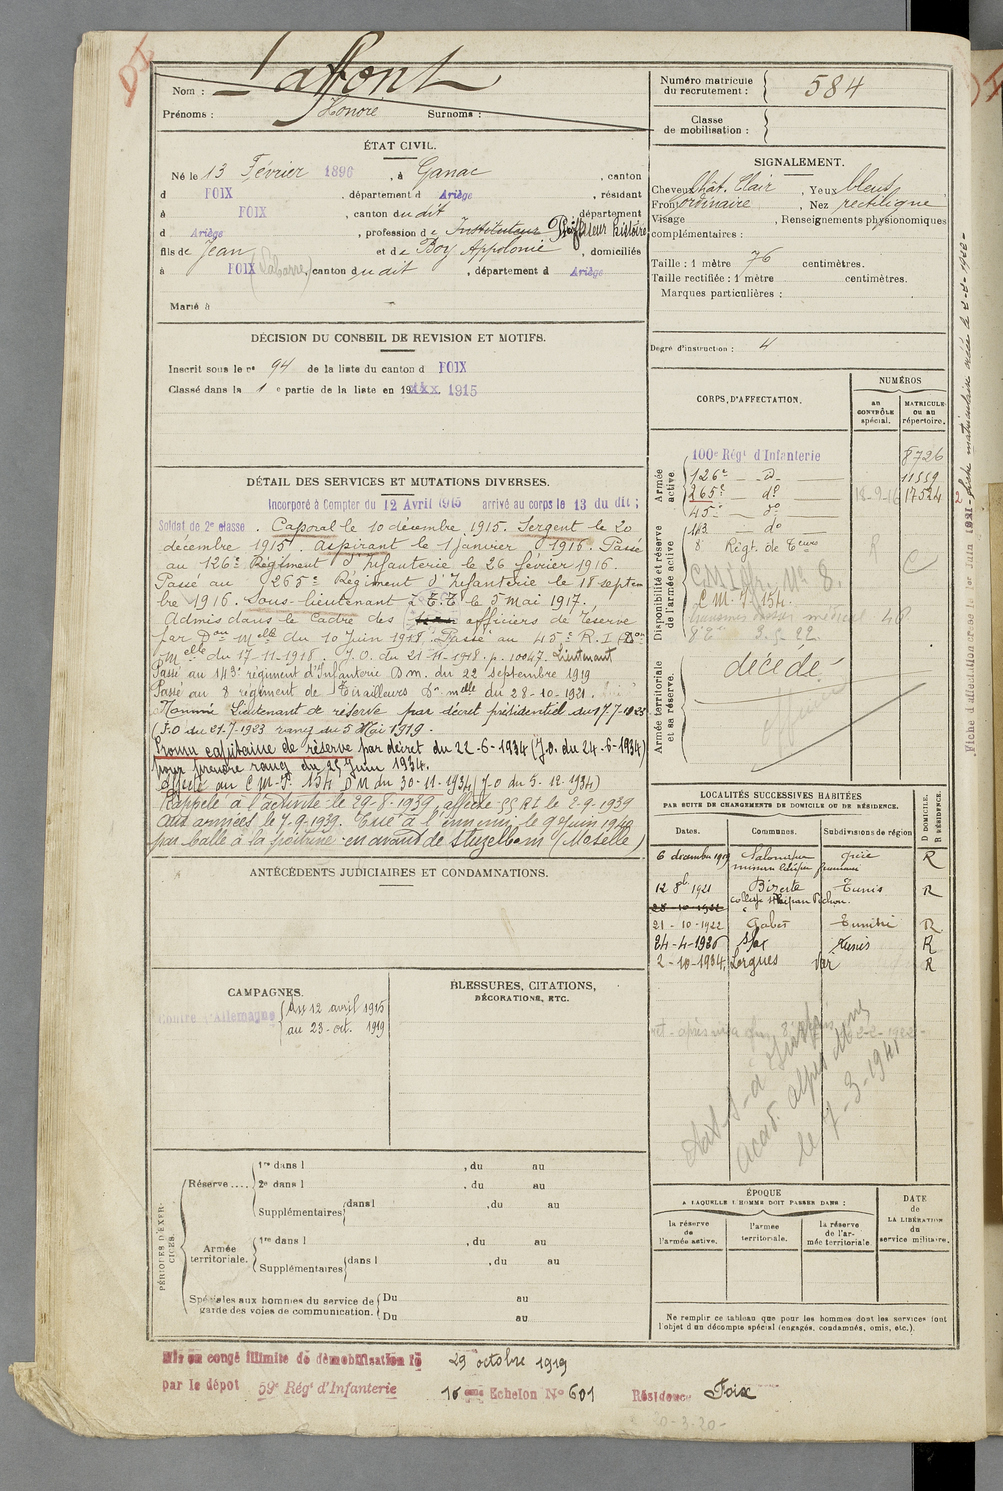 Nom : Laffont
Prénoms : Honoré Surnoms :
ÉTAT CIVIL.
Né le 13 Février 1896, à Ganac, canton
d FOIX, département d Ariège, résidant
à FOIX, canton du dit, département
d Ariège, profession de Instituteur Professeur histoire
fils de Jean et de Boy Appolonie, domiciliés
à FOIX (Labarre) canton du dit, département d Ariège
Marié à
DÉCISION DU CONSEIL DE REVISION ET MOTIFS.
Inscrit sous le no 94 de la liste du canton d FOIX
Classé dans la 1e partie de la liste en 1915
DÉTAIL DES SERVICES ET MUTATIONS DIVERSES.
Incorporé à Compter du 12 Avril 1915 arrivé au corps le 13 du dit ;
Soldat de 2e classe. Caporal le 10 décembre 1915. Sergent le 20
décembre 1915. Aspirant le 1 Janvier 1916. Passé
au 126e Régiment d'Infanterie le 26 février 1916.
Passé au 265e Régiment d'Infanterie le 18 septem
bre 1916. Sous-lieutenant à T.T. le 5 mai 1917.
Admis dans le Cadre des officiers de réserve
par Don Melle du 10 Juin 1918. Passé au 45e R.I (Don
Melle du 17-11-1918. J.O. du 21-11-1918. p. 10047. Lieutenant
Passé au 143e régiment d'Infanterie Dm. du 22 septembre 1919
Passé au 8 régiment de Tirailleurs Dn melle du 28-10-1921.
Nommé Lieutenant de réserve par décret présidentiel du 17-7-1923
(J.O du 21-7-1923 rang du 5 Mai 1919.
Promu capitaine de réserve par décret du 22-6-1934 (J.O. du 24-6-1934)
pour prendre rang du 25 Juin 1934.
Affecté au C M-I. 154 DM du 30-11-1934 (J.O du 5-12-1934)
Rappelé à l'activité le 29-8-1939, affecté 55 RI le 2-9-1939
Aux armées le 7-9-1939. Tué à l'ennemi le 9 Juin 1940
par balle à la poitrine en avant de Stuzelbam (Moselle)
ANTÉCÉDENTS JUDICIAIRES ET CONDAMNATIONS.
CAMPAGNES.
Contre l'Allemagne { Du 12 avril 1915
au 23-oct. 1919
BLESSURES, CITATIONS,
DÉCORATIONS, ETC.
PÉRIODES D'EXERCICES.
Réserve....
1re dans l , du au
2e dans l , du au
Supplémentaires dans l , du au
Armée
territoriale.
1re dans l , du au
Supplémentaires dans l , du au
Spéciales aux hommes du service de
garde des voies de communication.
Du au
Du au
Numéro matricule
du recrutement : 584
Classe
de mobilisation :
SIGNALEMENT.
Cheveux Chât. Clair, Yeux bleus
Front ordinaire, Nez rectiligne
Visage , Renseignements physionomiques
complémentaires :
Taille : 1 mètre 76 centimètres.
Taille rectifiée : 1 mètre centimètres.
Marques particulières :
Degré d'instruction : 4
CORPS D'AFFECTATION.
NUMÉROS
au
CONTRÔLE
spécial.
MATRICULE
ou au
répertoire.
Armée
active
100e Régt d'Infanterie 8726
126e - d° 11559
265e - d° 18-9-16 17524
45e - d°
Disponibilité et réserve
de l'armée active
143 do
8 Régt. de Teurs
C M-I-154.
Armée territoriale
et sa réserve.
décédé
LOCALITÉS SUCCESSIVES HABITÉES
PAR SUITE DE CHANGEMENTS DE DOMICILE OU DE RÉSIDENCE.
Dates. Communes. Subdivisions de région
D DOMICILE.
R RÉSIDENCE.
6 décembre 1919 Salonique Grèce R
mission laïque française
12 8bre 1921 Bizerte Tunis R
28-10-1921 collège Stéphan Pichon.
21-10-1922 Gabès Tunisie R
24-4-1926 Sfax Tunis R
2-10-1934 Lorgues Var R
le 7-3-1941
ÉPOQUE
A LAQUELLE L'HOMME DOIT PASSER DANS :
la réserve
de
l'armée active.
l'armée
territoriale.
la réserve
de l'ar-
mée territoriale.
DATE
de
LA LIBÉRATION
du
service militaire.
Ne remplir ce tableau que pour les hommes dont les services font
l'objet d'un décompte spécial (engagés, condamnés, omis, etc.).
Mis en congé illimité de démobilisation le 29 octobre 1919
par le dépôt 59e Régt d'Infanterie 16eme Echelon No 601 Résidence Foix